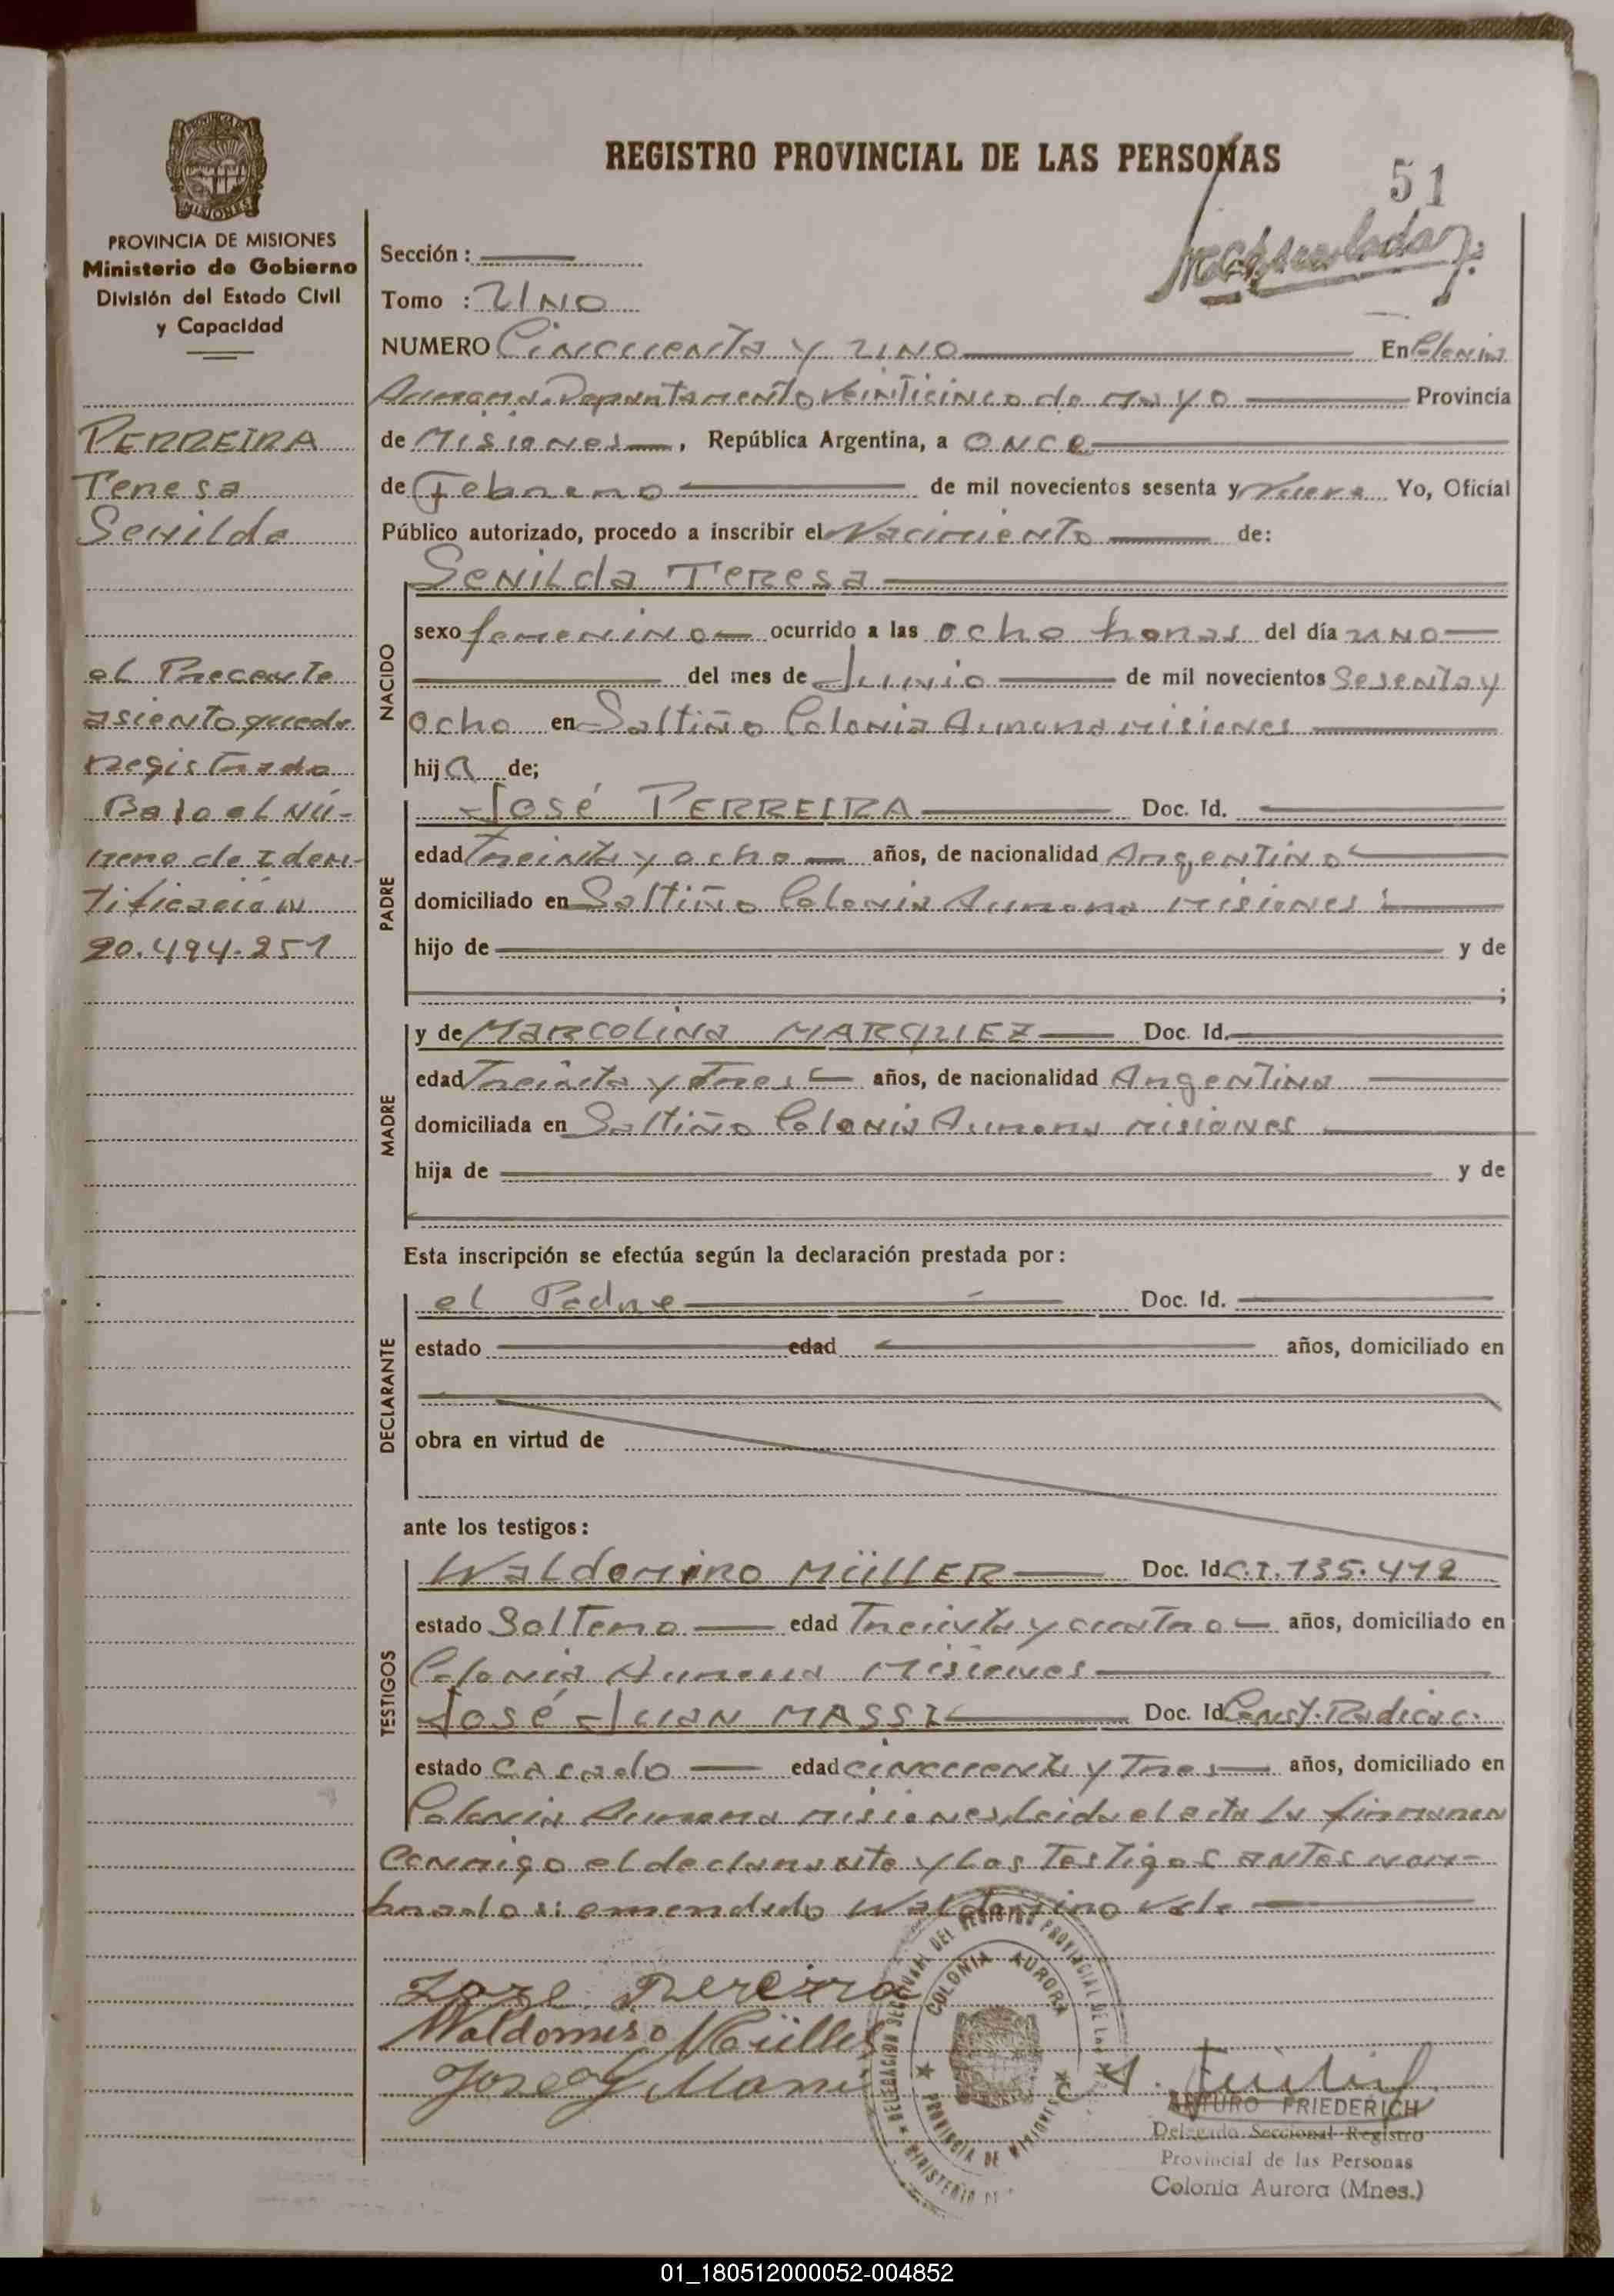 REGISTRO PROVINCIAL DE LAS PERSONAS
51
PROVINCIA DE MISIONES
Ministerio de Gobierno
División del Estado Civil
y Capacidad
PERREIRA
Teresa
Senilda
el Precente
asiento queda
registrado
Bajo el Nú-
mero de Iden-
tificación
20.494.251
Sección :
Tomo : UNO
NUMERO Cincuenta y UNO En Colonia
Aurora Departamento Veinticinco de Mayo Provincia
de Misiones, República Argentina, a ONCE
de Febrero de mil novecientos sesenta y nueve Yo, Oficial
Público autorizado, procedo a inscribir el Nacimiento de:
NACIDO
Senilda Teresa
sexo femenino ocurrido a las ocho horas del día uno
del mes de Junio de mil novecientos Sesenta y
ocho en Saltiño Colonia Aurora misiones
hija de;
PADRE
José PERREIRA Doc. Id.
edad Treinta y ocho años, de nacionalidad Argentino
domiciliado en Saltiño Colonia Aurora misiones
hijo de y de
;
MADRE
y de Marcolina MARQUEZ Doc. Id.
edad Treinta y Tres años, de nacionalidad Argentina
domiciliada en Saltiño Colonia Aurora misiones
hija de y de
Esta inscripción se efectúa según la declaración prestada por:
DECLARANTE
el Padre Doc. Id.
estado edad años, domiciliado en
obra en virtud de
ante los testigos:
TESTIGOS
Waldomiro MüllER Doc. Id C.I. 135.412
estado Soltero edad Treinta y cuatro años, domiciliado en
Colonia Aurora Misiones
José Juan MASSI Doc. Id Const. Radicac.
estado Casado edad cincuenta y Tres años, domiciliado en
Colonia Aurora misiones, leida el acta la firmaren
conmigo el declarante y los Testigos antes nom-
brados: emendido Waldomiro vale
Joze Pereira
Waldomiro Müller
Jose J Massi
DELEGACION SECCIONAL DEL REGISTRO PROVINCIAL DE LAS
COLONIA AURORA
PROVINCIA DE MISIONES
MINISTERIO DE
A. Friederich
ARTURO FRIEDERICH
Delegado Seccional Registro
Provincial de las Personas
Colonia Aurora (Mnes.)
01_180512000052-004852